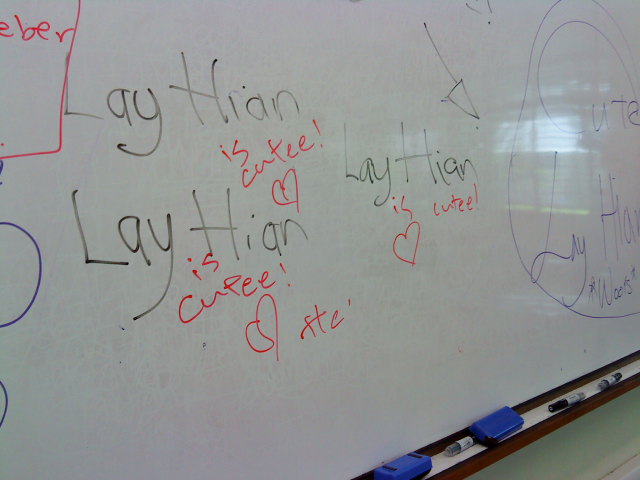 eber
Lay Hian
is
cutee!
Lay Hian
is
cutee!
Lay Hian
is cutee!
Cute
Lay Hian
*Woots*